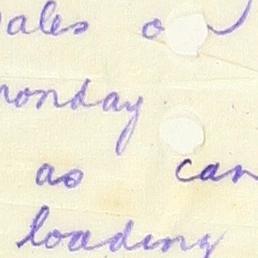 ales o
monday
as can
loading